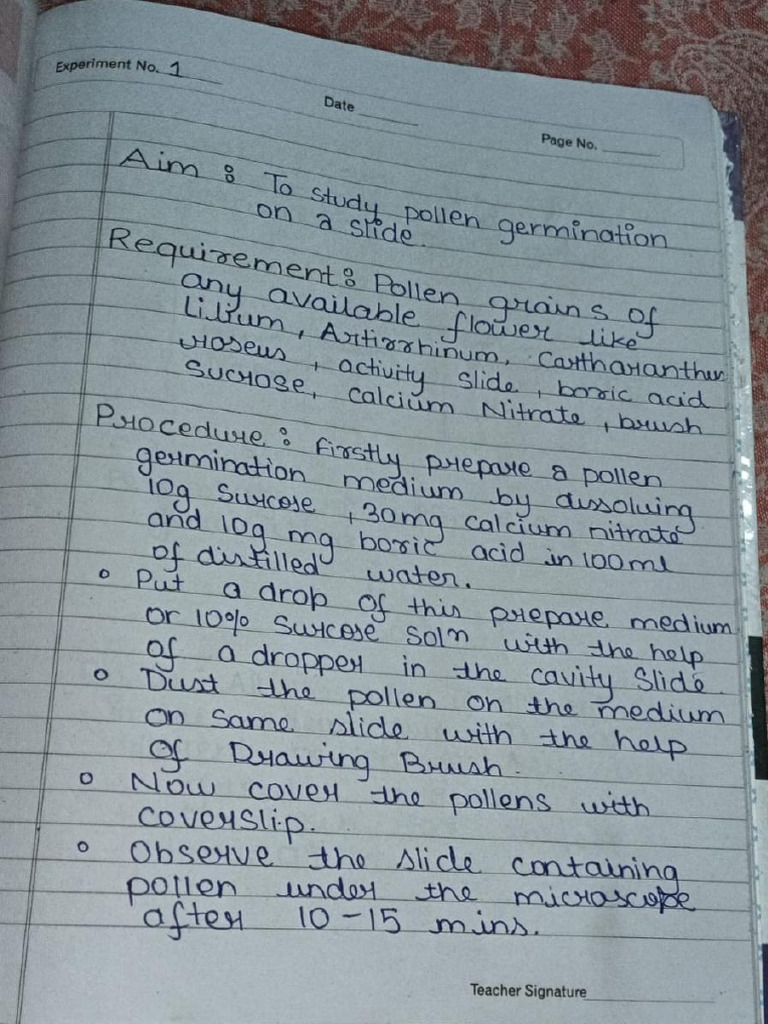 Experiment No. 1
Date
Page No.
Aim : To study pollen germination
on a slide.
Requirement : Pollen grains of
any available flower like
Lilium, Artirrhinum, Cartharanthus
roseus, activity slide, boric acid
Sucrose, calcium Nitrate, brush
Procedure : firstly prepare a pollen
germination medium by dissolving
10g Surcose, 30mg calcium nitrate
and 10g mg boric acid in 100ml
of distilled water.
• Put a drop of this prepare medium
or 10% Surcose soln with the help
of a dropper in the cavity Slide.
• Dust the pollen on the medium
on same slide with the help
of Drawing Brush.
• Now cover the pollens with
coverslip.
• Observe the slide containing
pollen under the microscope
after 10-15 mins.
Teacher Signature